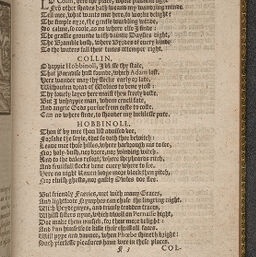 Tell me, what wants me here, to worke delight?
The simple ayre, the gentle warbling winde,
So calme, so coole, as no where else I finde:
The grassie grounde with daintie Daysies dight,
The Bramble bush, where Byrdes of every kinde
To the waters fall their tunes attemper right.
COLLIN.
O happie Hobbinoll, I blesse thy state,
That Paradise hast founde, whych Adam lost.
Here wander may thy flocke early or late,
Withouten dread of Wolves to bene ytost:
Thy lovely layes here mayst thou freely boste.
But I unhappie man, whom cruell fate,
And angrie Gods pursue from coste to coste,
Can no where fine, to shroude my lucklesse pate.
HOBBINOLL.
Then if by me thou list advised be,
Forsake the soyle, that so doth thee bewitch:
Leave me those hilles, where harbrough nis to see,
Nor holy bush, nor brere, nor winding witch.
And to the dales resort, where shepheards ritch,
And fruictfull flocks bene every where to see.
Here no night Ravens lodge more black then pitch,
Nor elvish ghosts, nor gastly Owles doe flee.
But friendly Faeries, met with many Graces,
And lightfoote Nymphes can chase the lingring night,
With Heydeguyes, and trimly trodden traces,
Whilst sisters nyne, which dwell on Parnasse hight,
Doe make them musick, for their more delight:
And Pan himselfe to kisse their christall faces,
Will pype and daunce, when Phoebe shineth bright:
Such pierlesse pleasures have wee in these places.
COL-